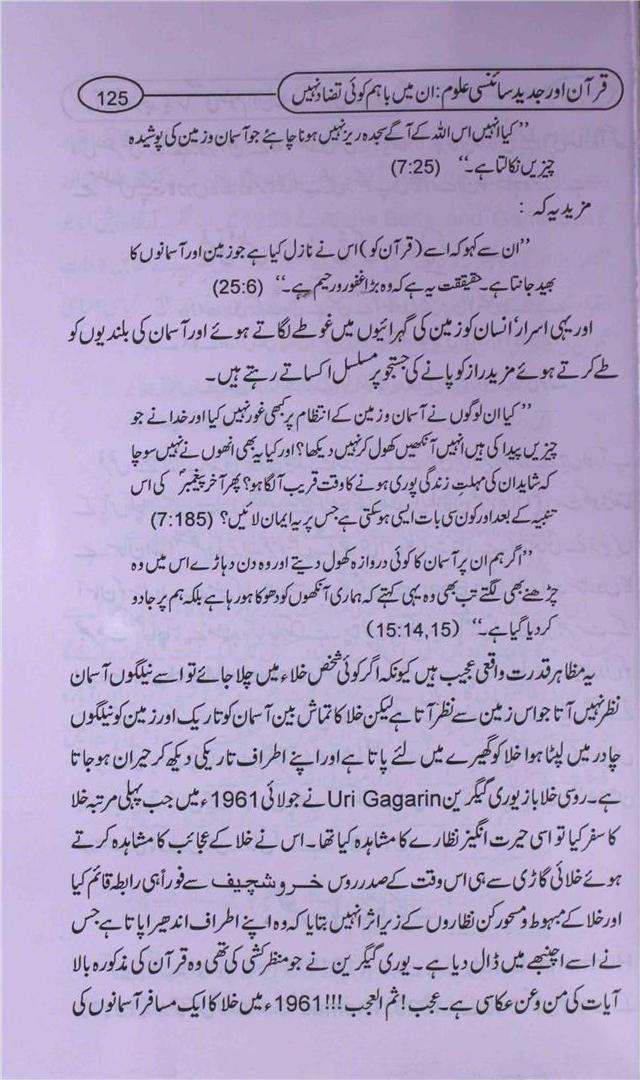 قرآن اور جدید سائنسی علوم: ان میں باہم کوئی تضاد نہیں 125
”کیا انہیں اس اللہ کے آگے سجدہ ریز نہیں ہونا چاہئے جو آسمان و زمین کی پوشیدہ
چیزیں نکالتا ہے۔“ (7:25)
مزید یہ کہ :
”ان سے کہو کہ اسے (قرآن کو) اس نے نازل کیا ہے جو زمین اور آسمانوں کا
بھید جانتا ہے۔ حقیقت یہ ہے کہ وہ بڑا غفور و رحیم ہے۔“ (25:6)
اور یہی اسرار‘ انسان کو زمین کی گہرائیوں میں غوطے لگاتے ہوئے اور آسمان کی بلندیوں کو
طے کرتے ہوئے مزید راز کو پانے کی جستجو پر مسلسل اکساتے رہتے ہیں۔
”کیا ان لوگوں نے آسمان و زمین کے انتظام پر کبھی غور نہیں کیا اور خدا نے جو
چیزیں پیدا کی ہیں انہیں آنکھیں کھول کر نہیں دیکھا؟ اور کیا یہ بھی انھوں نے نہیں سوچا
کہ شاید ان کی مہلتِ زندگی پوری ہونے کا وقت قریب آ لگا ہو؟ پھر آخر پیغمبرؐ کی اس
تنبیہ کے بعد اور کون سی بات ایسی ہو سکتی ہے جس پر یہ ایمان لائیں؟ (7:185)
”اگر ہم ان پر آسمان کا کوئی دروازہ کھول دیتے اور وہ دن دہاڑے اس میں وہ
چڑھنے بھی لگتے تب بھی وہ یہی کہتے کہ ہماری آنکھوں کو دھوکا ہو رہا ہے بلکہ ہم پر جادو
کر دیا گیا ہے۔“ (15:14,15)
یہ مظاہر قدرت واقعی عجیب ہیں کیونکہ اگر کوئی شخص خلاء میں چلا جائے تو اسے نیلگوں آسمان
نظر نہیں آتا جو اس زمین سے نظر آتا ہے لیکن خلا کا تماش بین آسمان کو تاریک اور زمین کو نیلگوں
چادر میں لپٹا ہوا خلا کو گھیرے میں لئے پاتا ہے اور اپنے اطراف تاریکی دیکھ کر حیران ہو جاتا
ہے۔ روسی خلا باز یوری گیگرین Uri Gagarin نے جولائی 1961ء میں جب پہلی مرتبہ خلا
کا سفر کیا تو اسی حیرت انگیز نظارے کا مشاہدہ کیا تھا۔ اس نے خلا کے عجائب کا مشاہدہ کرتے
ہوئے خلائی گاڑی سے ہی اس وقت کے صدر روس خروشچیف سے فوراً ہی رابطہ قائم کیا
اور خلا کے مبہوط و مسحور کن نظاروں کے زیر اثر انہیں بتایا کہ وہ اپنے اطراف اندھیرا پاتا ہے جس
نے اسے اچنبھے میں ڈال دیا ہے۔ یوری گیگرین نے جو منظر کشی کی تھی وہ قرآن کی مذکورہ بالا
آیات کی من و عن عکاسی ہے۔ عجب! ثم العجب !!! 1961ء میں خلا کا ایک مسافر آسمانوں کی